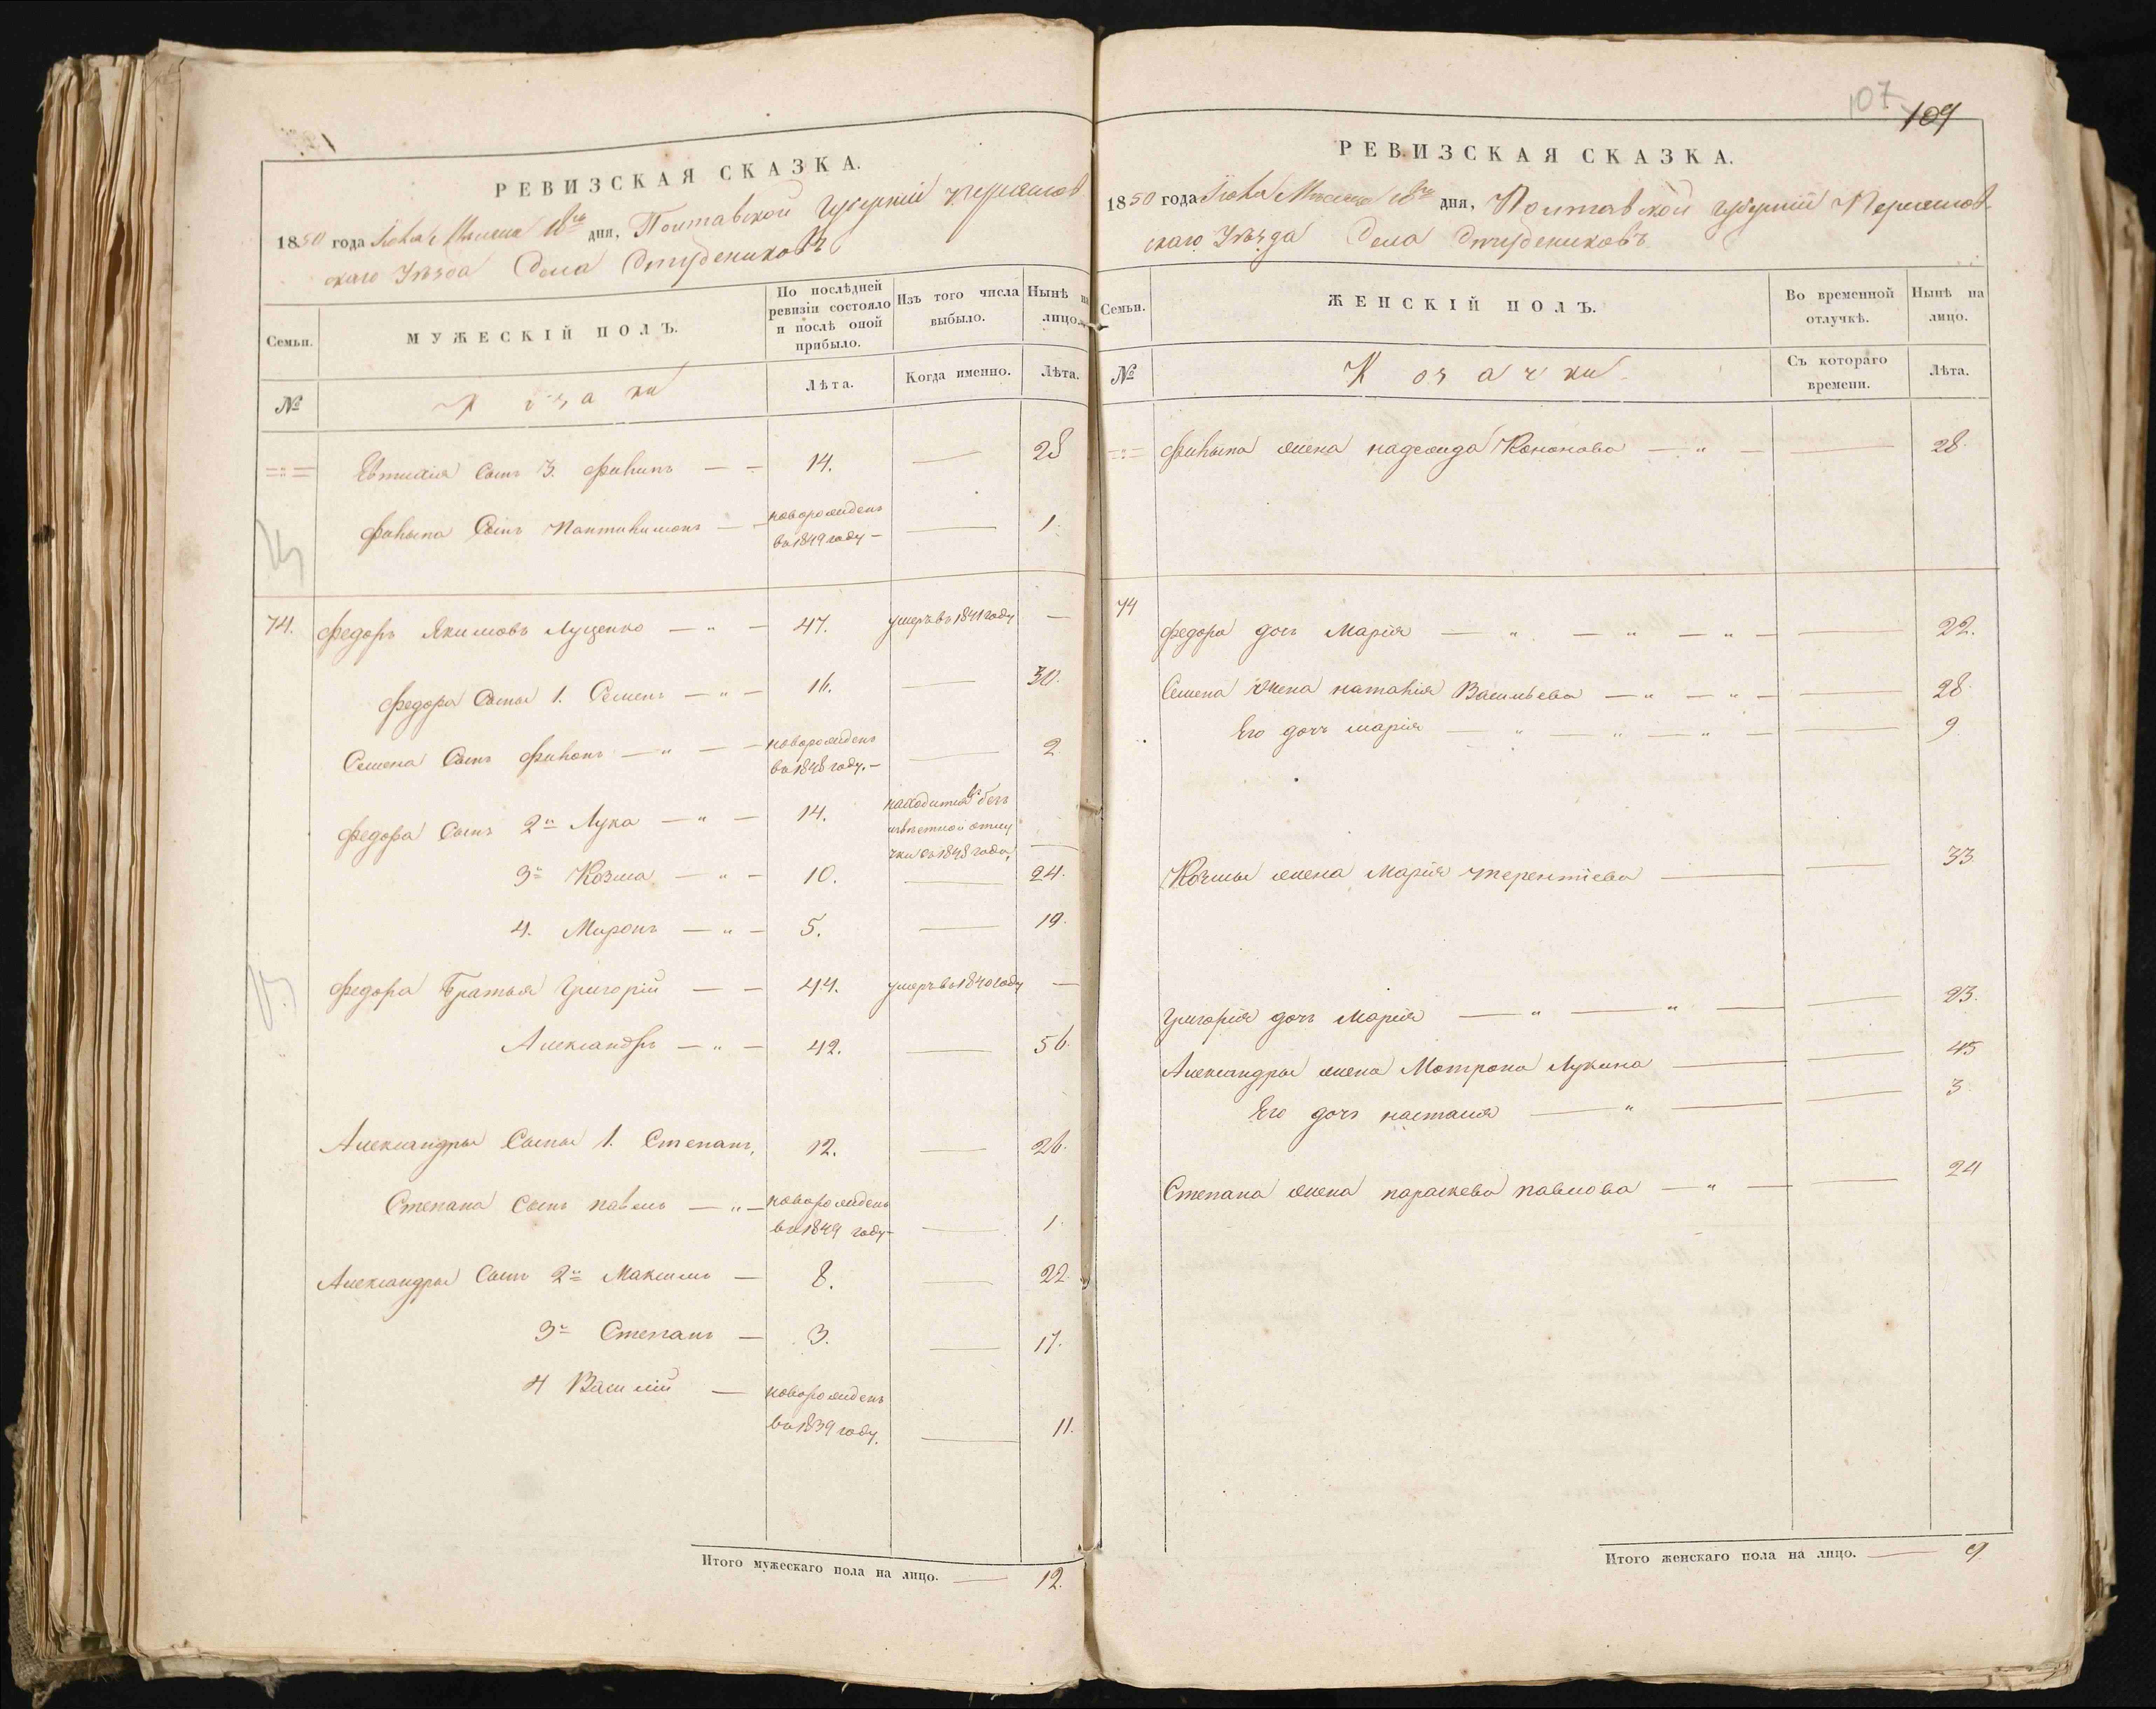 РЕВИЗСКАЯ СКАЗКА.
1850 года Июля Месяца дня, Полтавской Губернiи Переяслов
скаго Уѣзда Села Студениковъ
Семьи.
МУЖЕСКІЙ ПОЛЪ.
По послѣдней ревизіи состояло и послѣ оной прибыло.
Изъ того числа выбыло.
Нынѣ на лицо.
№
Козаки
Лѣта.
Когда именно.
Лѣта.
Евтихія Сынъ 3. Филипъ 14. — 28
Филипа Сынъ Пантилимонъ новорожденъ въ 1849 году — 1.
74. Федоръ Якимовъ Луценко 47. умеръ въ 1841 году —
Федора Сыны 1. Семенъ 16. — 30.
Семена Сынъ Филонъ новорожденъ въ 1848 году. — 2.
Федора Сынъ 2й Лука 14. находится въ безъ извѣстной отлу чки съ 1848 года, —
3й Козма 10. — 24.
4. Миронъ 5. — 19.
Федора Братья Григорій 44. умеръ въ 1840 году —
Александръ 42. — 56.
Александры Сыны 1. Степанъ, 12. — 26.
Степана Сынъ павелъ новорожденъ въ 1849 году — 1.
Александры Сынъ 2й Максимъ 8. — 22.
3й Степанъ 3. — 17.
4 Василій новорожденъ въ 1839 году. — 11.
Итого мужескаго пола на лицо. — 12.
107
109
РЕВИЗСКАЯ СКАЗКА.
1850 года Июля Месяца дня, Полтавской Губерніи Переяслов
скаго Уѣзда Села Студениковъ
Семьи.
ЖЕНСКІЙ ПОЛЪ.
Во временной отлучкѣ.
Нынѣ на лицо.
№
Козачки
Съ котораго времени.
Лѣта.
Филипа жена надежида Кононова — 28.
74
Федора дочь Марія — 22.
Семена жена наталія Васильева — 28.
Его дочь марія — 9
Козмы жена Марія терентіева — 33.
Григорія дочь Марія — 23.
Александры жена Мотрона Лукина — 45
Его дочь настасия — 3
Степана жена параскева павлова — 24
Итого женскаго пола на лицо. — 9